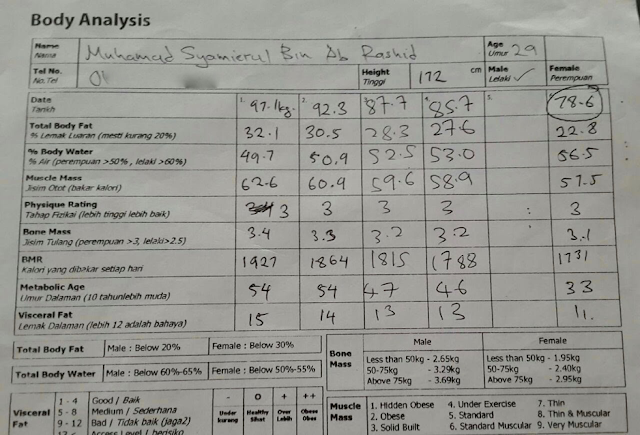 Body Analysis
Name Muhamad Syamierul Bin Ab Rashid Age 29
Nama Umur
Tel No. 01 Height 172 cm Male ✓ Female
No. Tel Tinggi Lelaki Perempuan
Date 1. 97.1kg 2. 92.3 87.7 4. 85.7 5. 78.6
Tarikh
Total Body Fat 32.1 30.5 28.3 27.6 22.8
% Lemak Luaran (mesti kurang 20%)
% Body Water 49.7 50.9 52.5 53.0 56.5
% Air (perempuan >50% , lelaki >60%)
Muscle Mass 62.6 60.9 59.6 58.9 57.5
Jisim Otot (bakar kalori)
Physique Rating 3 3 3 3 : 3
Tahap Fizikal (lebih tinggi lebih baik)
Bone Mass 3.4 3.3 3.2 3.2 3.1
Jisim Tulang (perempuan >3, lelaki>2.5)
BMR 1927 1864 1815 1788 1731
Kalori yang dibakar setiap hari
Metabolic Age 54 54 47 46 33
Umur Dalaman (10 tahunlebih muda)
Visceral Fat 15 14 13 13 11.
Lemak Dalaman (lebih 12 adalah bahaya)
Total Body Fat Male : Below 20% Female : Below 30%
Total Body Water Male : Below 60%-65% Female : Below 50%-55%
Visceral Fat
1 - 4 Good / Baik
5 - 8 Medium / Sederhana
9 - 12 Bad / Tidak baik (jaga2)
- O + ++
Under kurang Healthy Sihat Over Lebih Obese Obes
Bone Mass
Male Female
Less than 50kg - 2.65kg Less than 50kg - 1.95kg
50-75kg - 3.29kg 50-75kg - 2.40kg
Above 75kg - 3.69kg Above 75kg - 2.95kg
Muscle Mass
1. Hidden Obese 4. Under Exercise 7. Thin
2. Obese 5. Standard 8. Thin & Muscular
3. Solid Built 6. Standard Muscular 9. Very Muscular